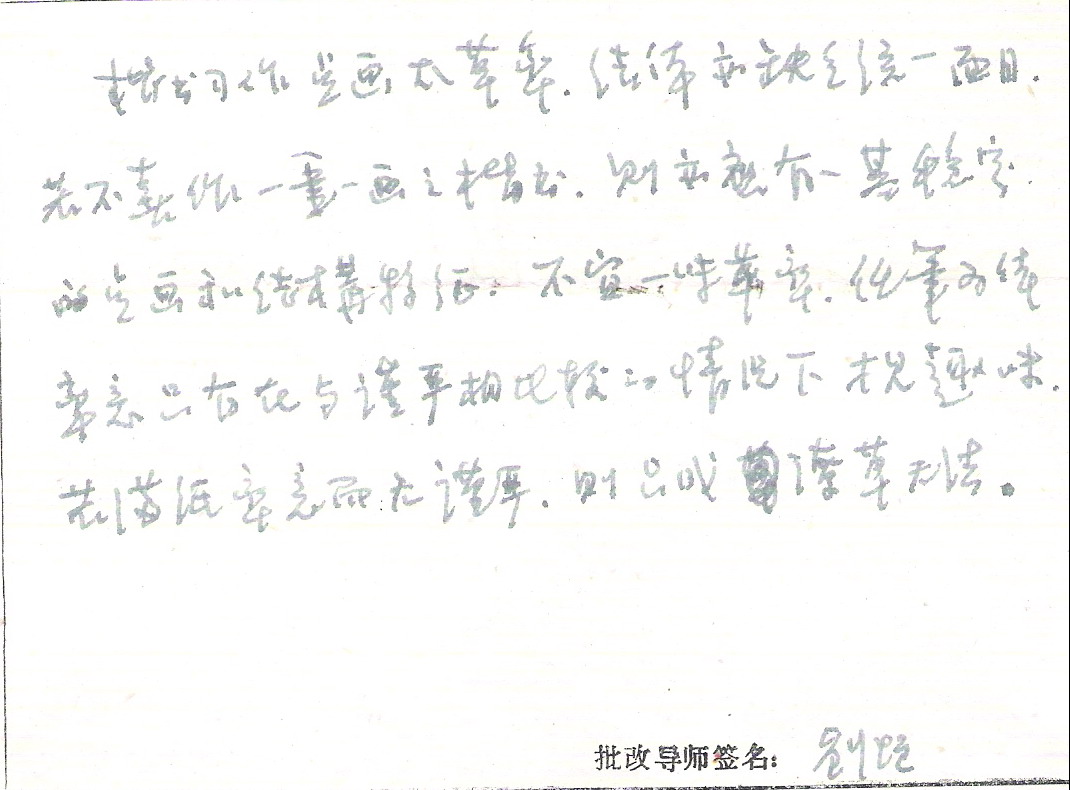 楷书习作点画太草率.结体亦缺乏统一面目.
若不喜作一笔一画之楷书.则亦应有一基稳定
的点画和结构特征.不宜一味草率.任笔为体
率意只有在与谨严相比较的情况下才见趣味.
若满纸率意而无谨严.则只成潦草无法。
批改导师签名: